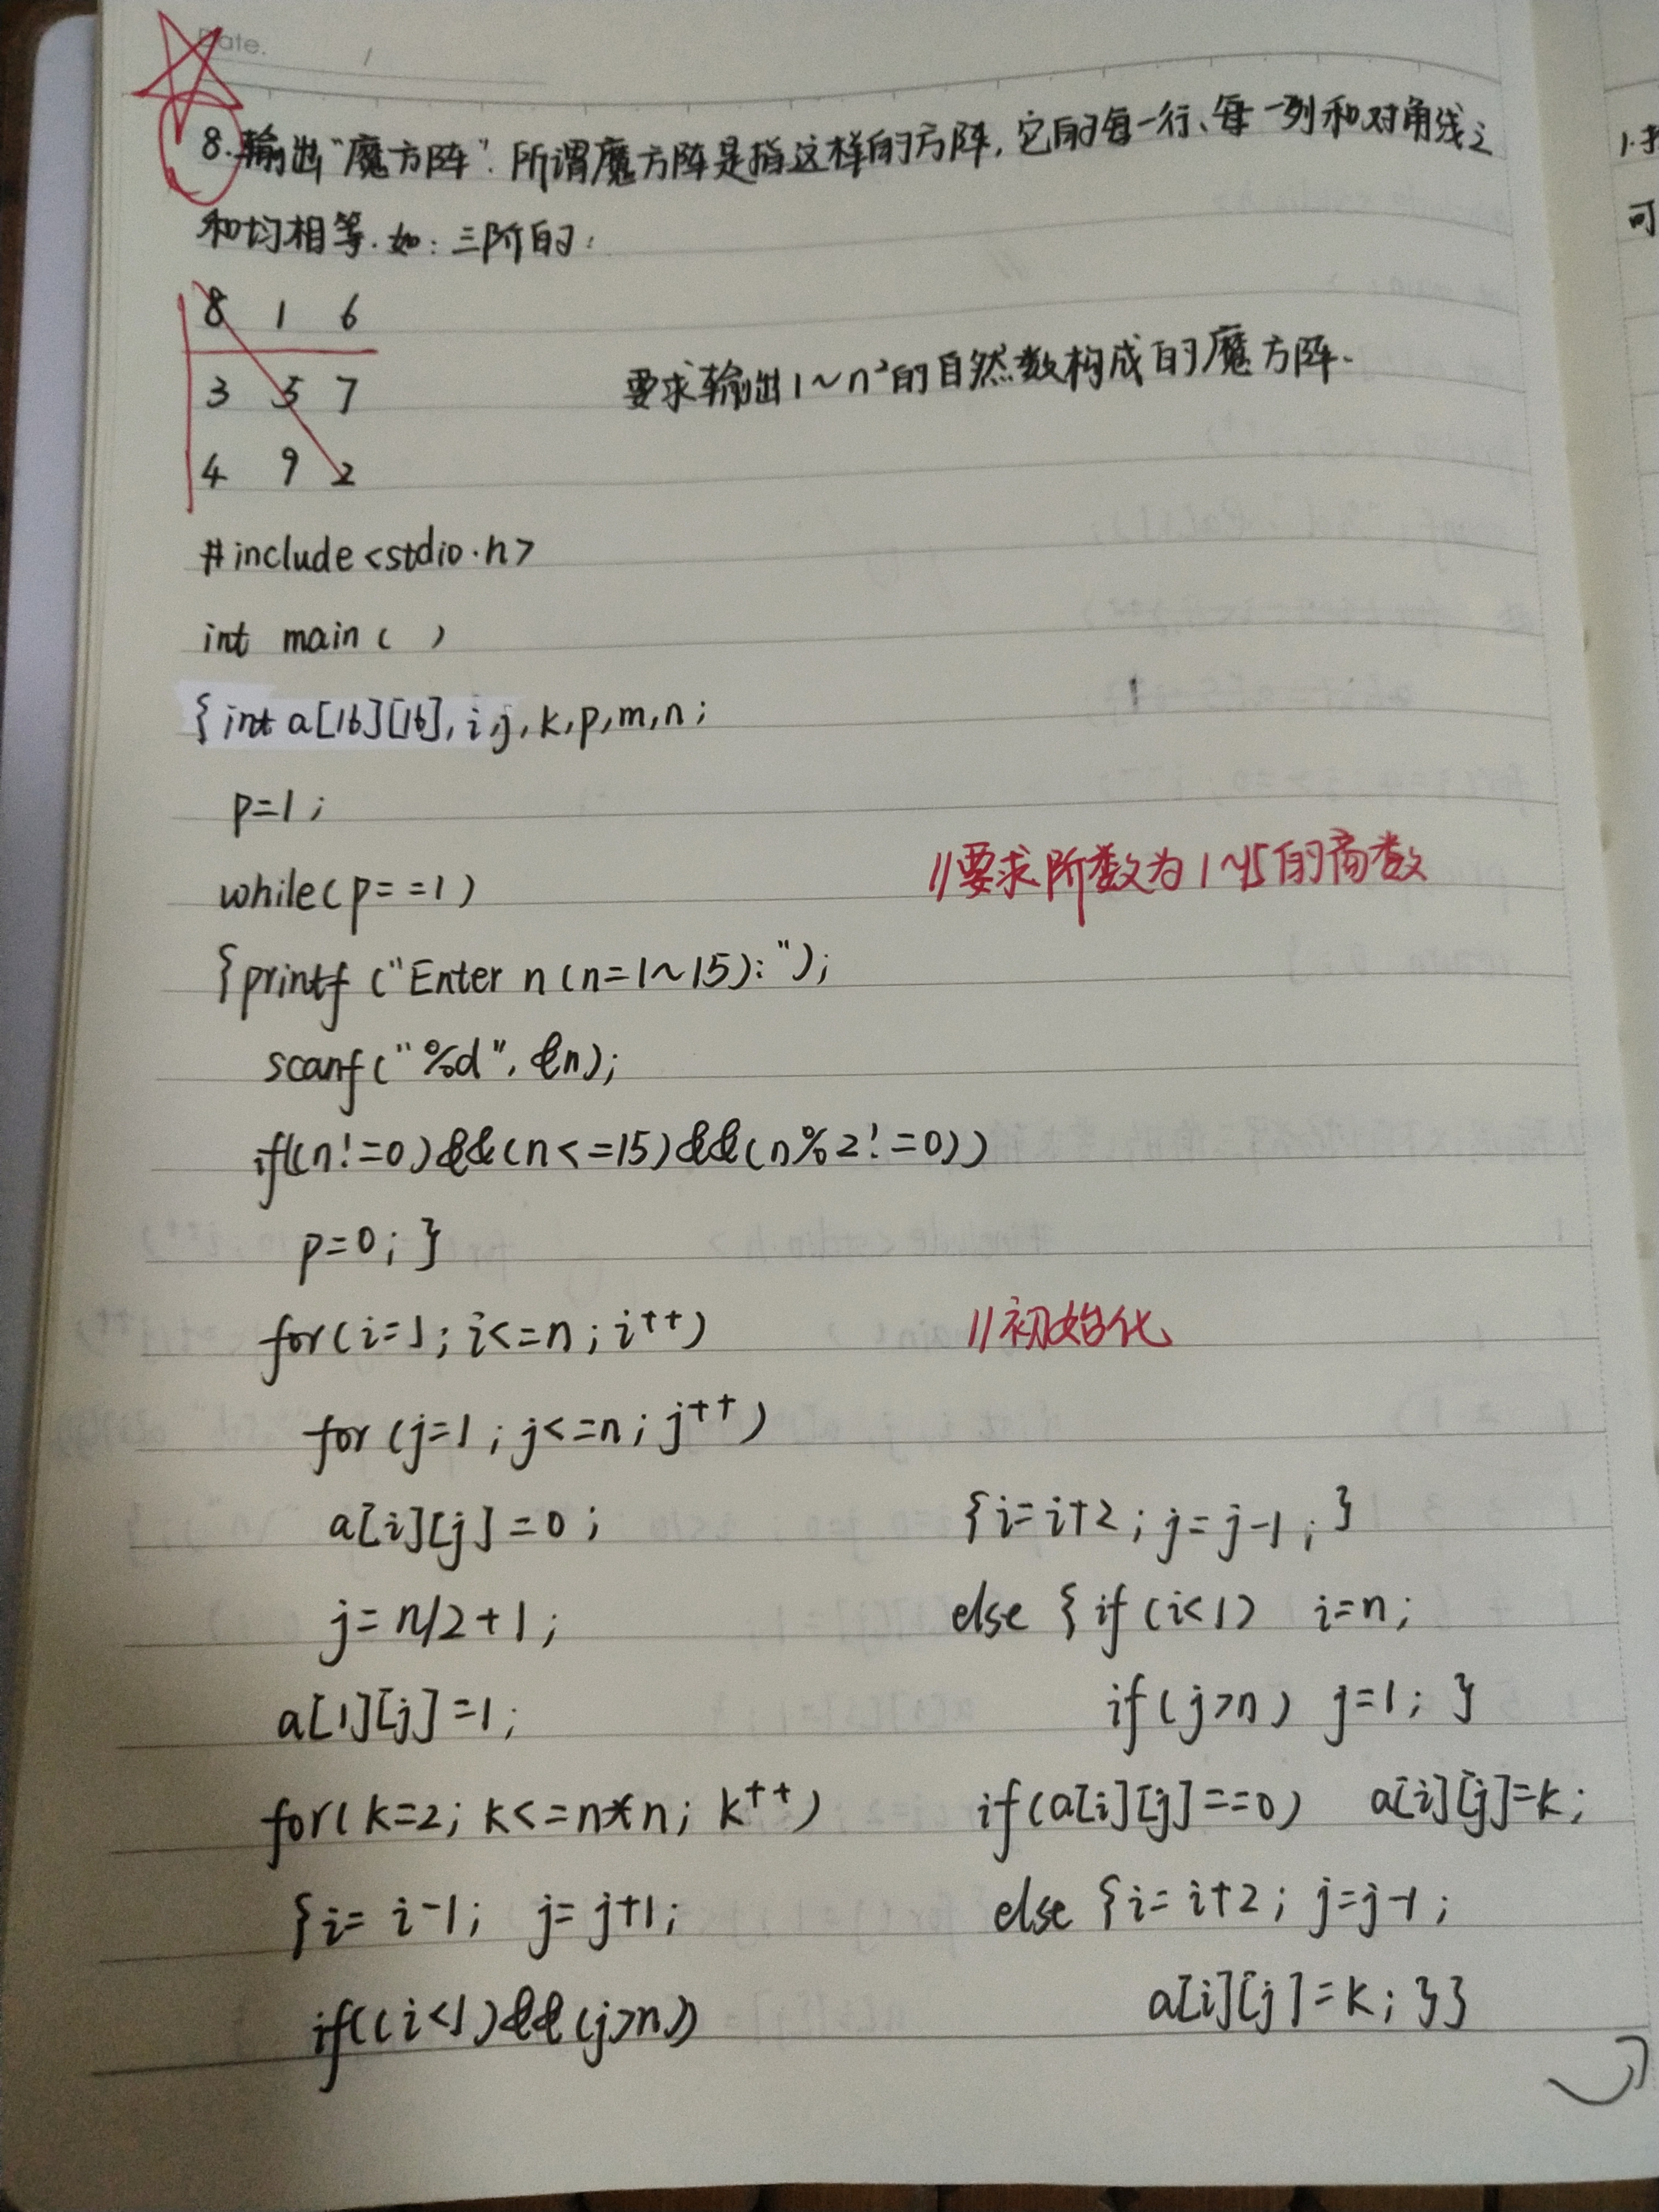 Date.
8.输出“魔方阵”.所谓魔方阵是指这样的方阵,它的每一行、每一列和对角线之
和均相等.如:三阶的:
8 1 6
3 5 7
4 9 2
要求输出1~n²的自然数构成的魔方阵.
#include<stdio.h>
int main( )
{int a[16][16],i,j,k,p,m,n;
p=1;
while(p==1)
//要求阶数为1~15的奇数
{printf("Enter n(n=1~15):");
scanf("%d",&n);
if((n!=0)&&(n<=15)&&(n%2!=0))
p=0;}
for(i=1;i<=n;i++)
//初始化
for(j=1;j<=n;j++)
a[i][j]=0;
j=n/2+1;
a[1][j]=1;
for(k=2;k<=n*n;k++)
{i=i-1; j=j+1;
if((i<1)&&(j>n))
{i=i+2;j=j-1;}
else {if(i<1) i=n;
if(j>n) j=1;}
if(a[i][j]==0) a[i][j]=k;
else {i=i+2;j=j-1;
a[i][j]=k;}}
可